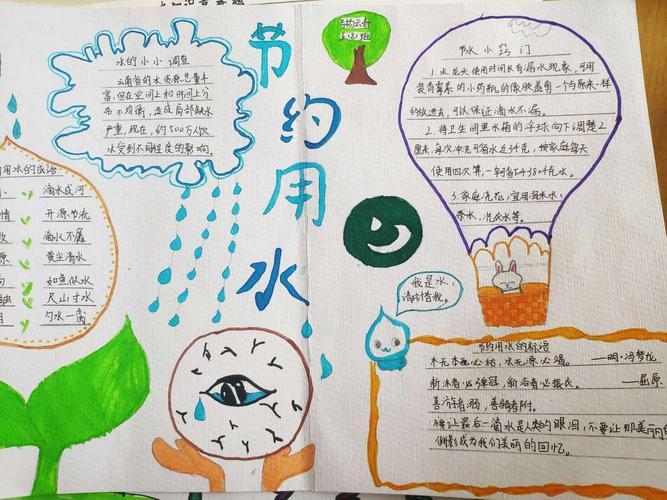 水的小小调查
云南省的水资源总量丰
富,但在空间上和时间上分
布不均衡,造成局部缺水
严重,现在,约500万人饮
水受到不同程度的影响。
节
约
用
水
节水小窍门
1.水龙头使用时间长有漏水现象,可用
装青霉素的小药瓶的橡胶盖剪一个与原来一样
的放进去,可以保证滴水不漏。
2.将卫生间里水箱的浮球向下调整2
厘米,每次冲
使用四次算,一
3.家庭洗花,宜用淘米水
茶水,洗衣水等。
用水的成语
滴水成河
开源节流
滴水不漏
黄尘清水
如鱼似水
尺山寸水
勺水一脔
我是水,
请珍惜我。
节约用水的标语
木无本必枯,水无源必竭。——明·冯梦龙
新沐者必弹冠,新浴者必振衣。——屈原
善游者溺,善骑者附。
让最后一滴水是人类的眼泪,不要让那美丽的
倒影成为我们美丽的回忆。